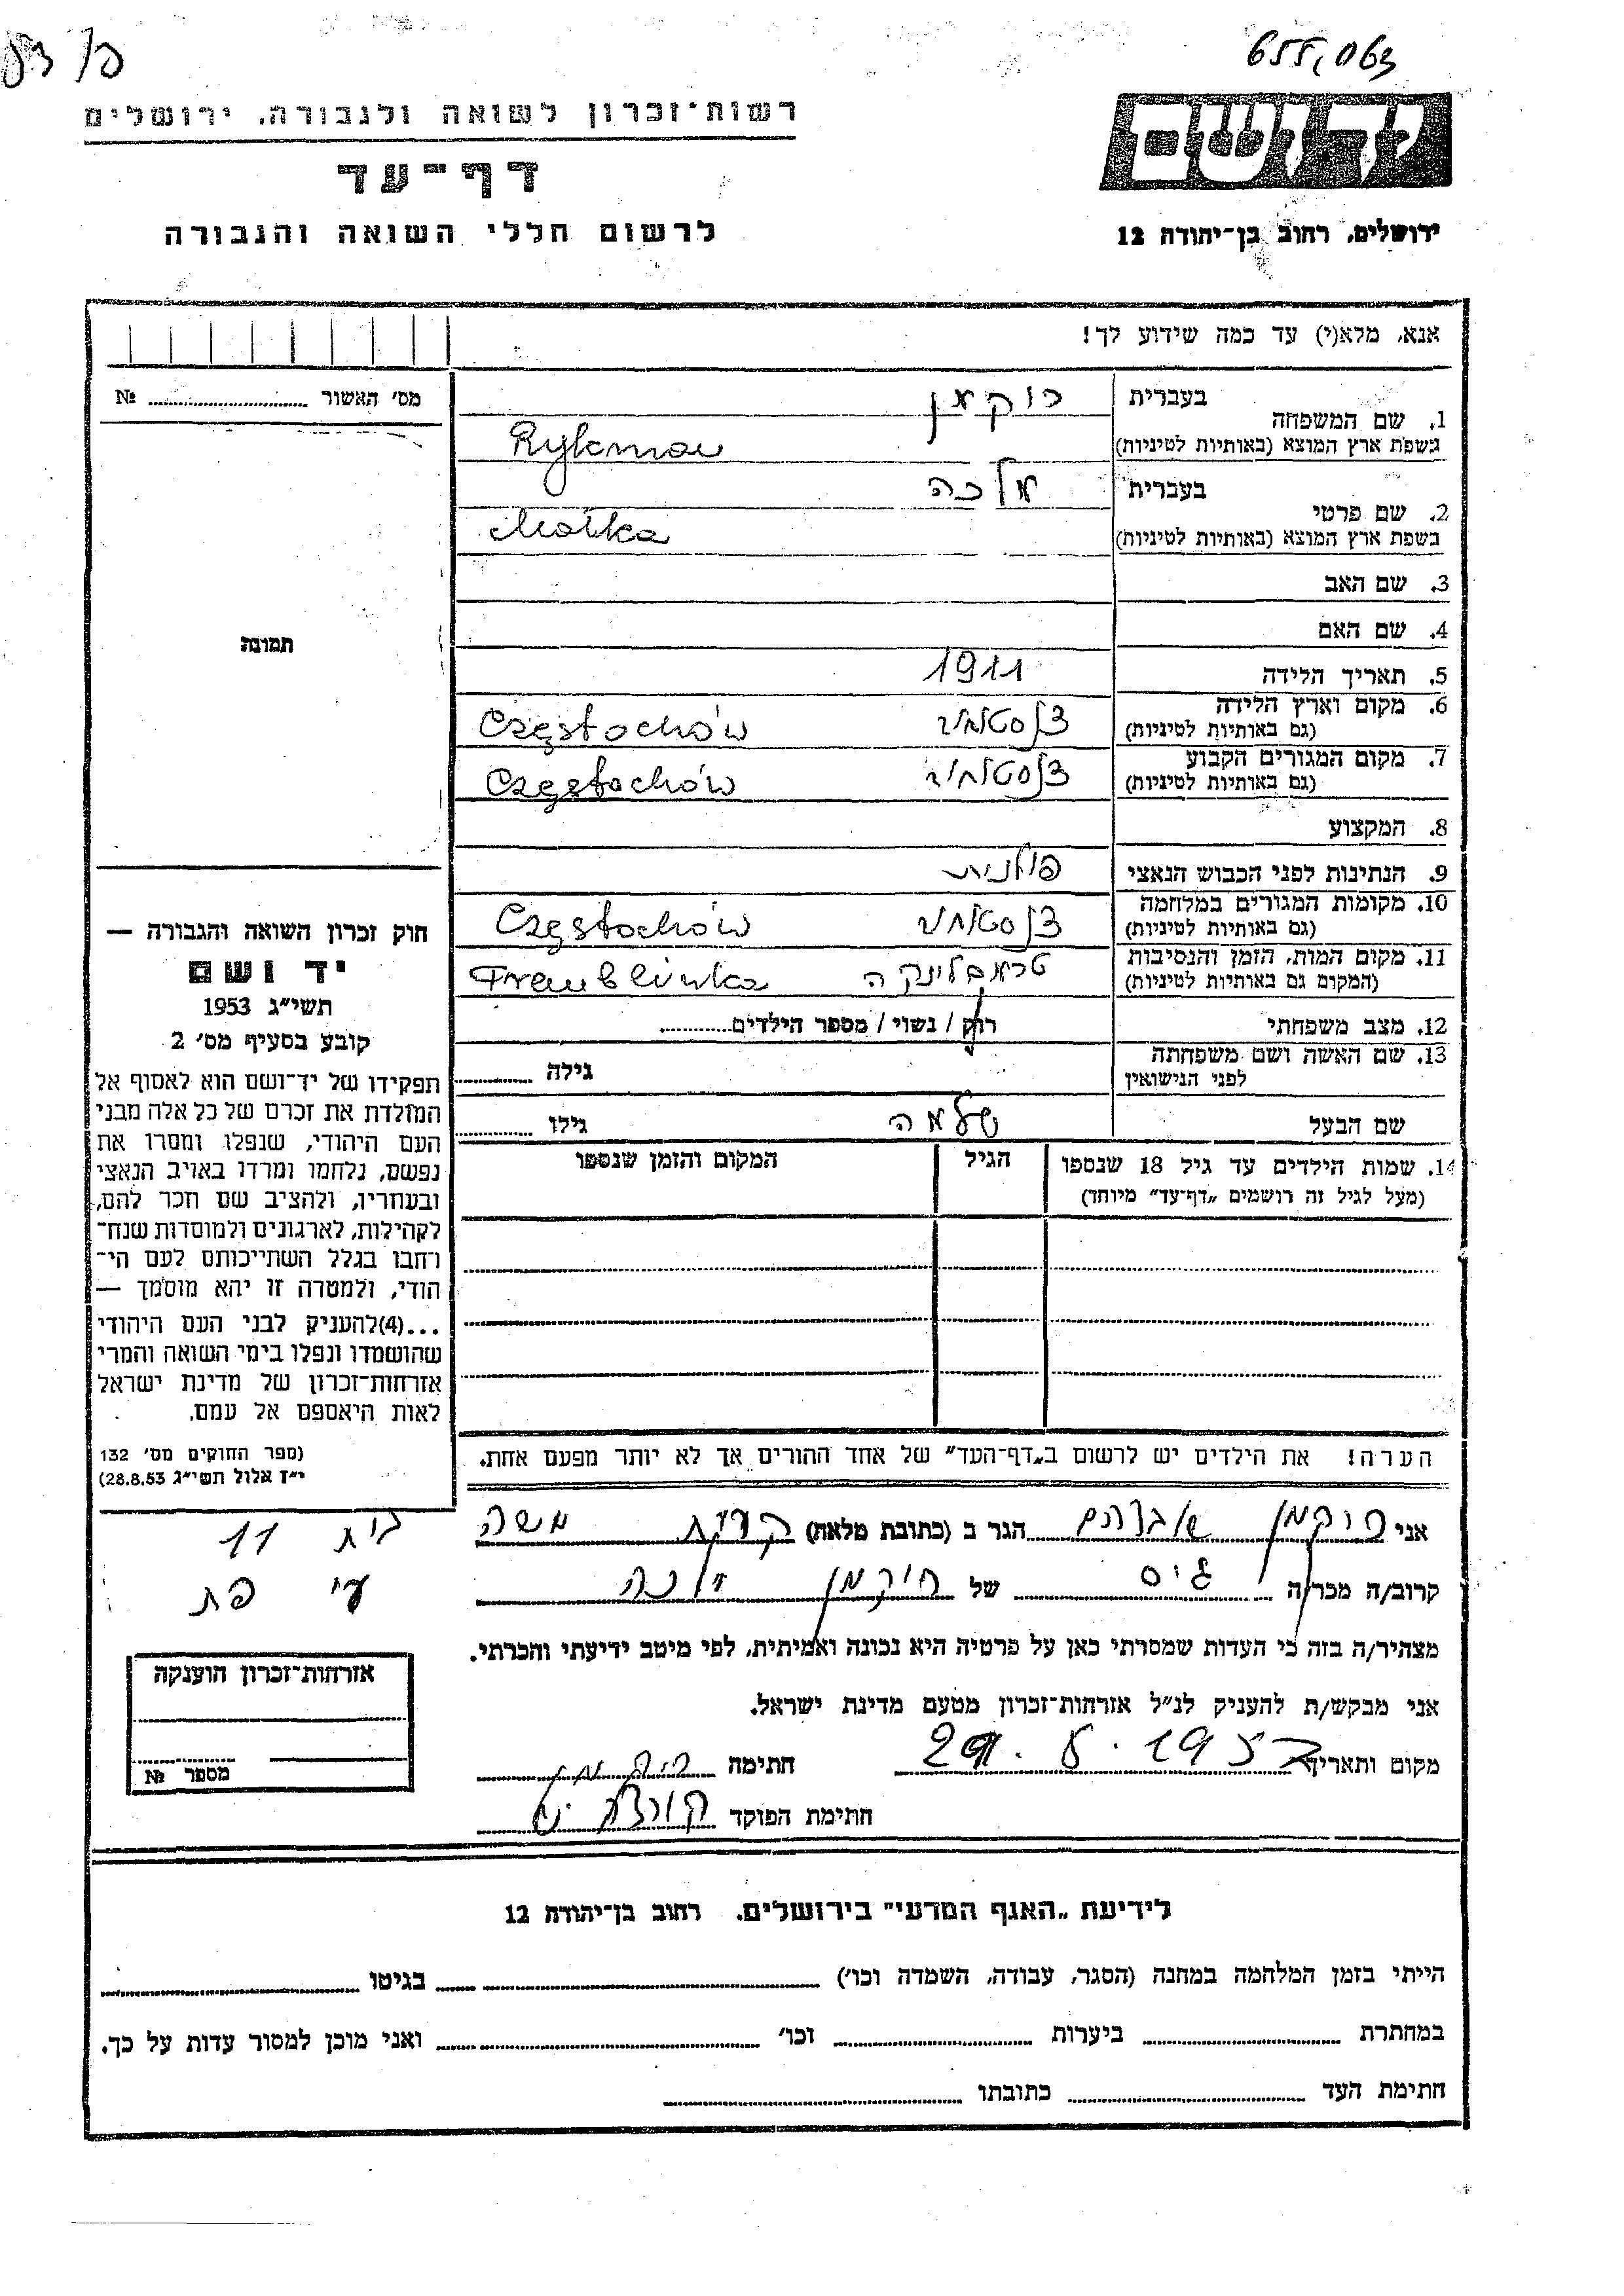 655,063
רשות־זכרון לשואה ולגבורה, ירושלים
יד ושם
דף־עד
לרשום חללי השואה והגבורה
ירושלים, רחוב בן־יהודה 12
אנא, מלא(י) עד כמה שידוע לך!
מס׳ האשור № 
1. שם המשפחה בעברית רוקמן
בשפת ארץ המוצא (באותיות לטיניות) Rykman
2. שם פרטי בעברית מלכה
בשפת ארץ המוצא (באותיות לטיניות) Malka
3. שם האב
4. שם האם
תמונה
5. תאריך הלידה 1911
6. מקום וארץ הלידה (גם באותיות לטיניות) צ'נסטוחוב Częstochów
7. מקום המגורים הקבוע (גם באותיות לטיניות) צ'נסטוחוב Częstochów
8. המקצוע
9. הנתינות לפני הכבוש הנאצי פולנית
10. מקומות המגורים במלחמה (גם באותיות לטיניות) צ'נסטוחוב Częstochów
11. מקום המות, הזמן והנסיבות (המקום גם באותיות לטיניות) טראבלינקה Tremblinka
12. מצב משפחתי רווק / נשוי / מספר הילדים
13. שם האשה ושם משפחתה לפני הנישואין גילה
שם הבעל שלמה גילו
14. שמות הילדים עד גיל 18 שנספו הגיל המקום והזמן שנספו
(מעל לגיל זה רושמים „דף־עד” מיוחד)
חוק זכרון השואה והגבורה —
יד ושם
תשי״ג 1953
קובע בסעיף מס׳ 2
תפקידו של יד־ושם הוא לאסוף אל
המולדת את זכרם של כל אלה מבני
העם היהודי, שנפלו ומסרו את
נפשם, נלחמו ומרדו באויב הנאצי
ובעוזריו, ולהציב שם וזכר להם,
לקהילות, לארגונים ולמוסדות שנח־
רבו בגלל השתייכותם לעם הי־
הודי, ולמטרה זו יהא מוסמך —
...(4) להעניק לבני העם היהודי
שהושמדו ונפלו בימי השואה והמרי
אזרחות־זכרון של מדינת ישראל
לאות היאספם אל עמם.
(ספר החוקים מס׳ 132
י״ז אלול תשי״ג 28.8.53)
הערה! את הילדים יש לרשום ב„דף־העד” של אחד ההורים אך לא יותר מפעם אחת.
אני רוקמן אברהם הגר ב (כתובת מלאה) קרית משה
בית 11
קרוב/ה מכר/ה גיס של רוקמן מלכה
מצהיר/ה בזה כי העדות שמסרתי כאן על פרטיה היא נכונה ואמיתית, לפי מיטב ידיעתי והכרתי.
אני מבקש/ת להעניק לנ״ל אזרחות־זכרון מטעם מדינת ישראל.
מקום ותאריך חתימה רוקמן
חתימת הפוקד
אזרחות־זכרון הוענקה
מספר №
לידיעת „האגף המדעי” בירושלים, רחוב בן־יהודה 12
הייתי בזמן המלחמה במחנה (הסגר, עבודה, השמדה וכו׳) בגיטו
במחתרת ביערות וכו׳ ואני מוכן למסור עדות על כך.
חתימת העד כתובתו